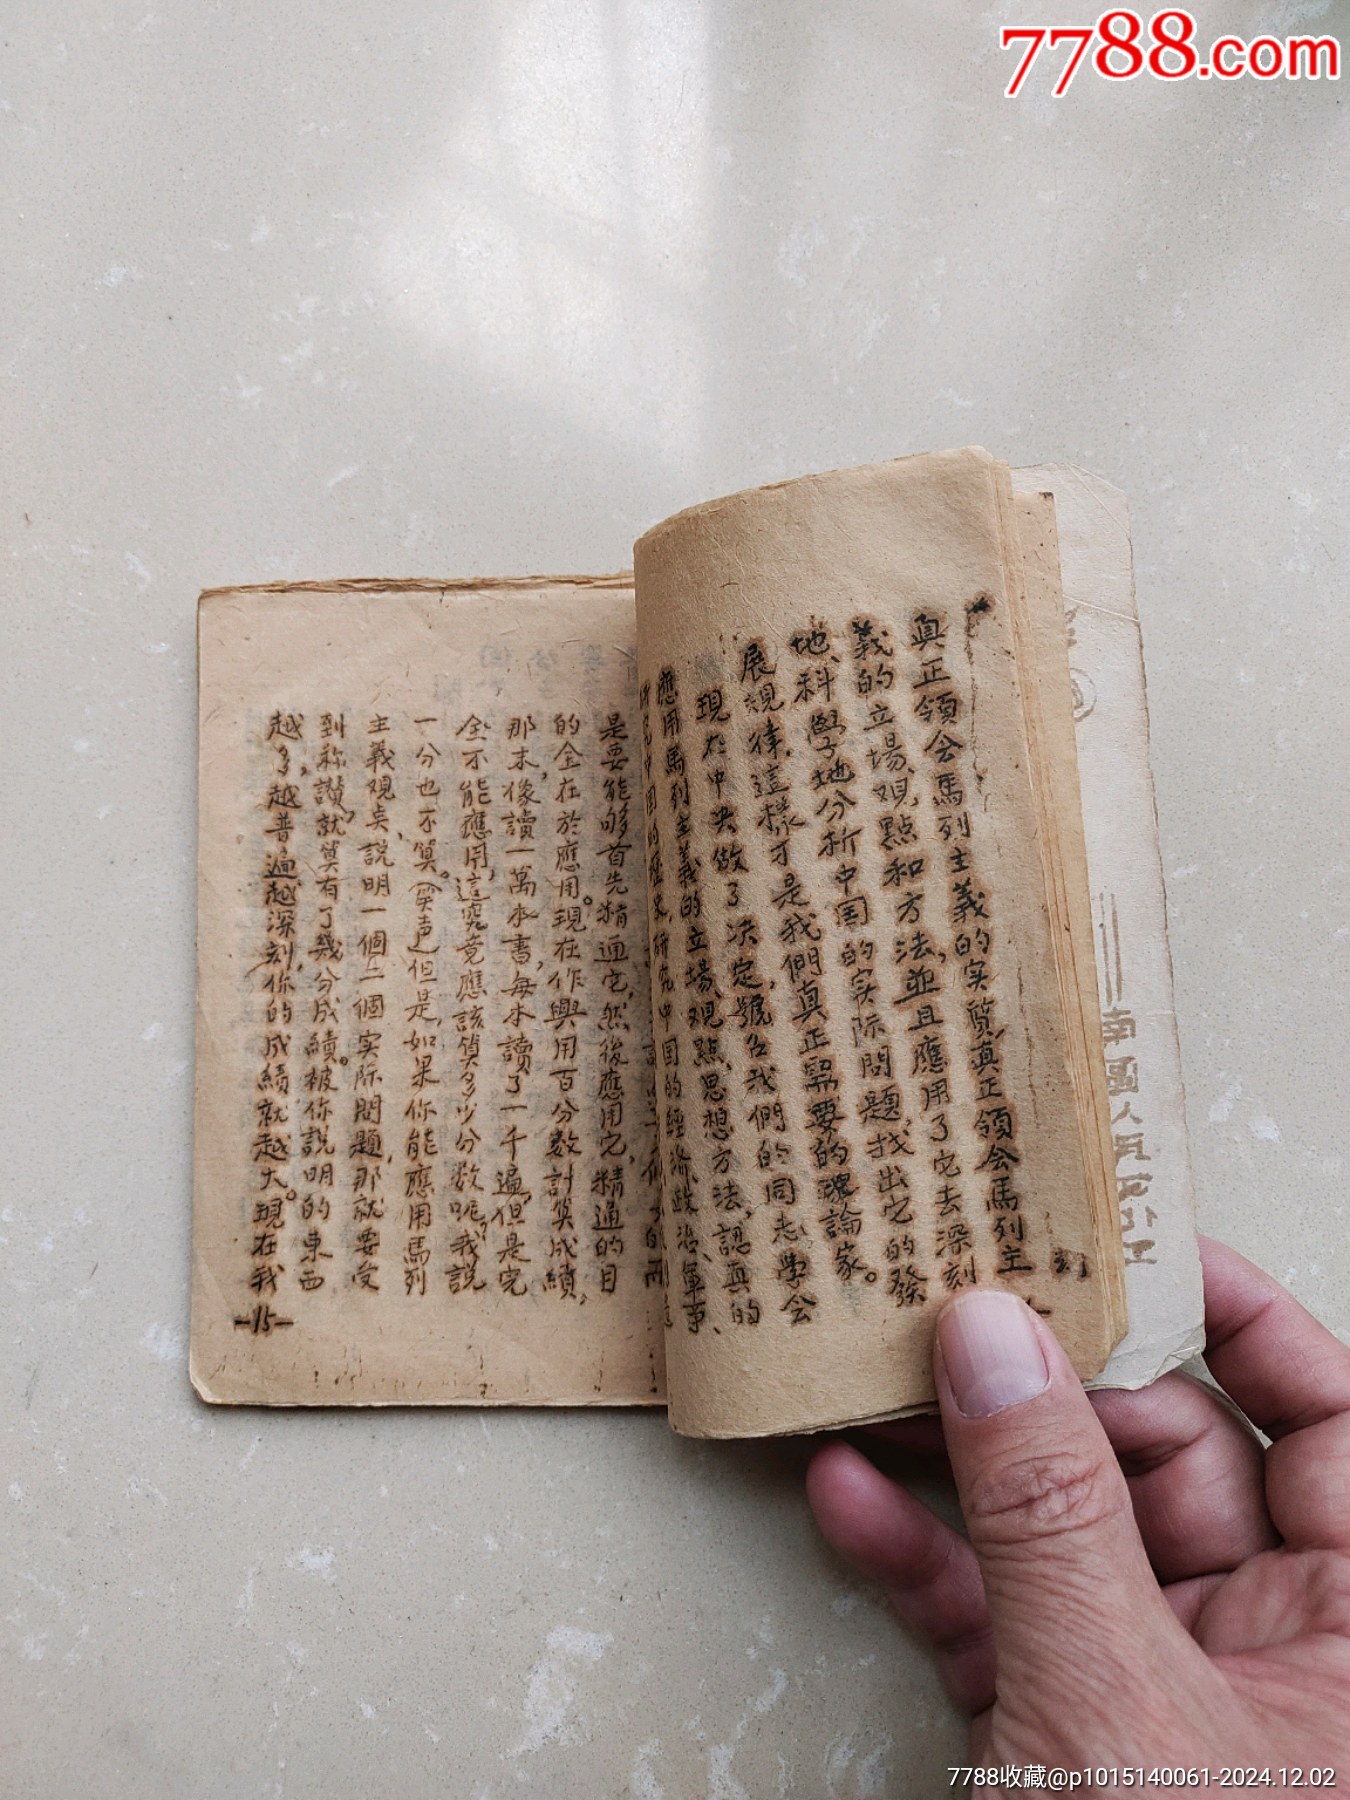 7788.com
真正領会馬列主義的实質,真正領会馬列主
義的立場,观點和方法,並且應用了它去深刻
地,科學地分析中国的实际問題,找出它的發
展規律,這樣才是我們真正需要的理論家。
現在中央做了决定,號召我們的同志學会
應用馬列主義的立場、观點、思想方法,認真的
研究中国的歷史,研究中国的經济、政治、軍事、
是要能够首先精通它,然後應用它,精通的目
的全在於應用。現在作興用百分数計算成績,
那末,像讀一萬本書,每本讀了一千遍,但是完
全不能應用,這究竟應該算多少分数呢?我説
一分也不算。(笑声)但是,如果你能應用馬列
主義观点,説明一個二個实际問題,那就要受
到称讃,就算有了幾分成績。被你説明的東西
越多,越普遍越深刻,你的成績就越大。現在我
-15-
南
人
7788收藏@p1015140061-2024.12.02